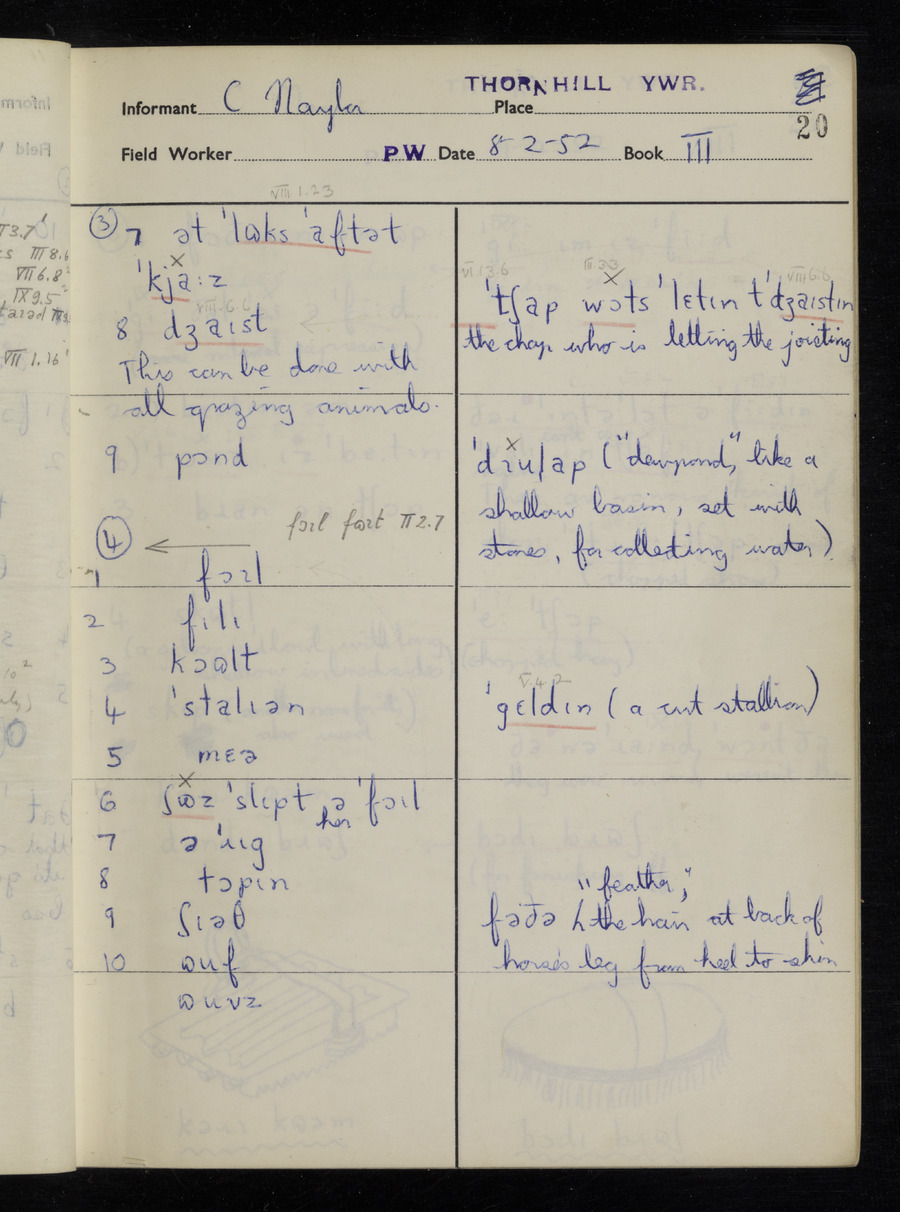 THORNHILL YWR.
Informant C Naylor Place
20
Field Worker PW Date 8-2-52 Book III
VIII 1.23
③ 7 ət 'lʊks 'aftət
'kja:z
VIII 6.6
8 dʒaɪst
This can be done with
all grazing animals.
9 pɔnd
fɔɪl fɑɪt II 2.7
④
1 fɔɪl
2 fɪlɪ
3 kɔʊlt
4 'stalɪən
5 mɛə
6 ʃʊz 'slɪpt ə 'fɔɪl
her
7 ə 'ɪɪg
8 tɔpɪn
9 ʃɪəθ
10 ʊuf
ʊuvz
VI 13.6 III 3.3 VIII 6.6
'tʃap wɔts 'lɛtɪn t'dʒaɪstɪn
the chap who is letting the joisting
'dɪu|ap ("dewpond", like a
shallow basin, set with
stones, for collecting water)
V.4.2
'gɛldɪn (a cut stallion)
"feather",
fəðə the hair at back of
horse's leg from heel to shin
II 3.7
III 8.6
VII 6.8
IX 9.5
VII 1.16